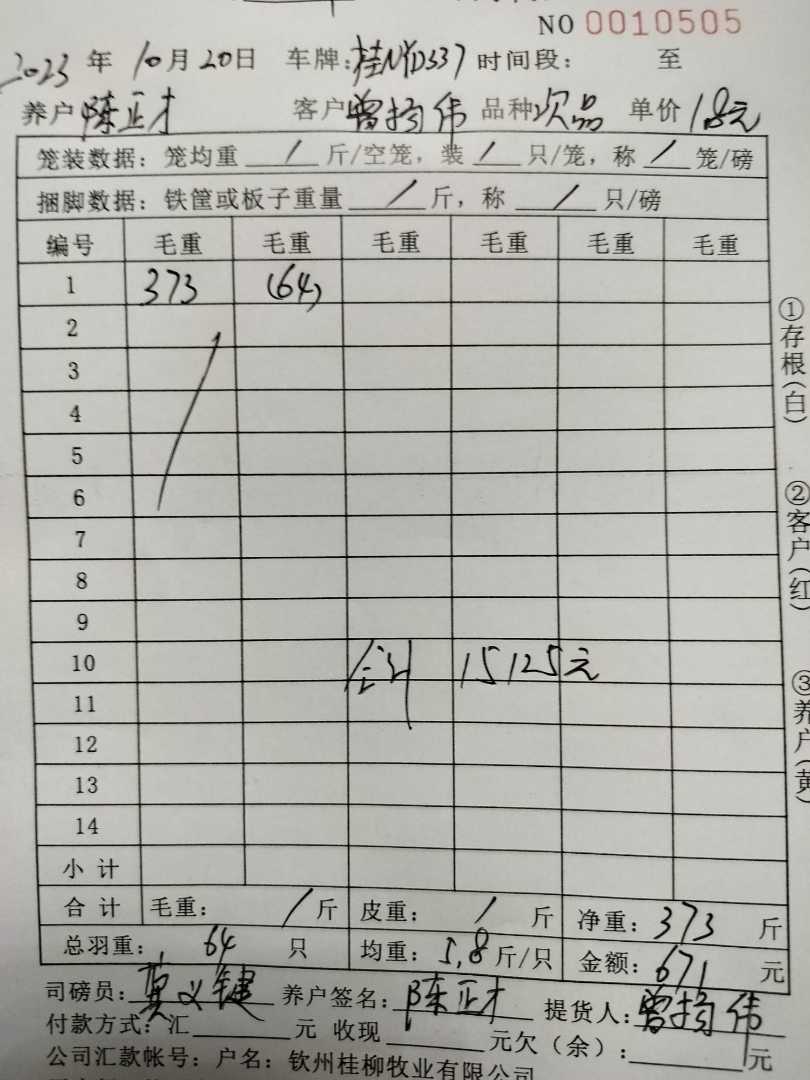 NO 0010505
2023 年 10月 20日 车牌:桂NYD337 时间段: 至
养户 陈正才 客户 曾扬伟 品种 次品 单价 1.8元
笼装数据: 笼均重 / 斤/空笼, 装 / 只/笼, 称 / 笼/磅
捆脚数据: 铁筐或板子重量 / 斤, 称 / 只/磅
编号 毛重 毛重 毛重 毛重 毛重 毛重
1 373 (64)
2
3
4
5
6
7
8
9
10 合计 15125元
11
12
13
14
小 计
合 计 毛重: / 斤 皮重: / 斤 净重: 373 斤
总羽重: 64 只 均重: 5.8 斤/只 金额: 671 元
司磅员: 莫义键 养户签名: 陈正才 提货人: 曾扬伟
付款方式: 汇 元 收现 元欠(余): 元
公司汇款帐号: 户名: 钦州桂柳牧业有限公司
①存根(白)
②客户(红)
③养户(黄)